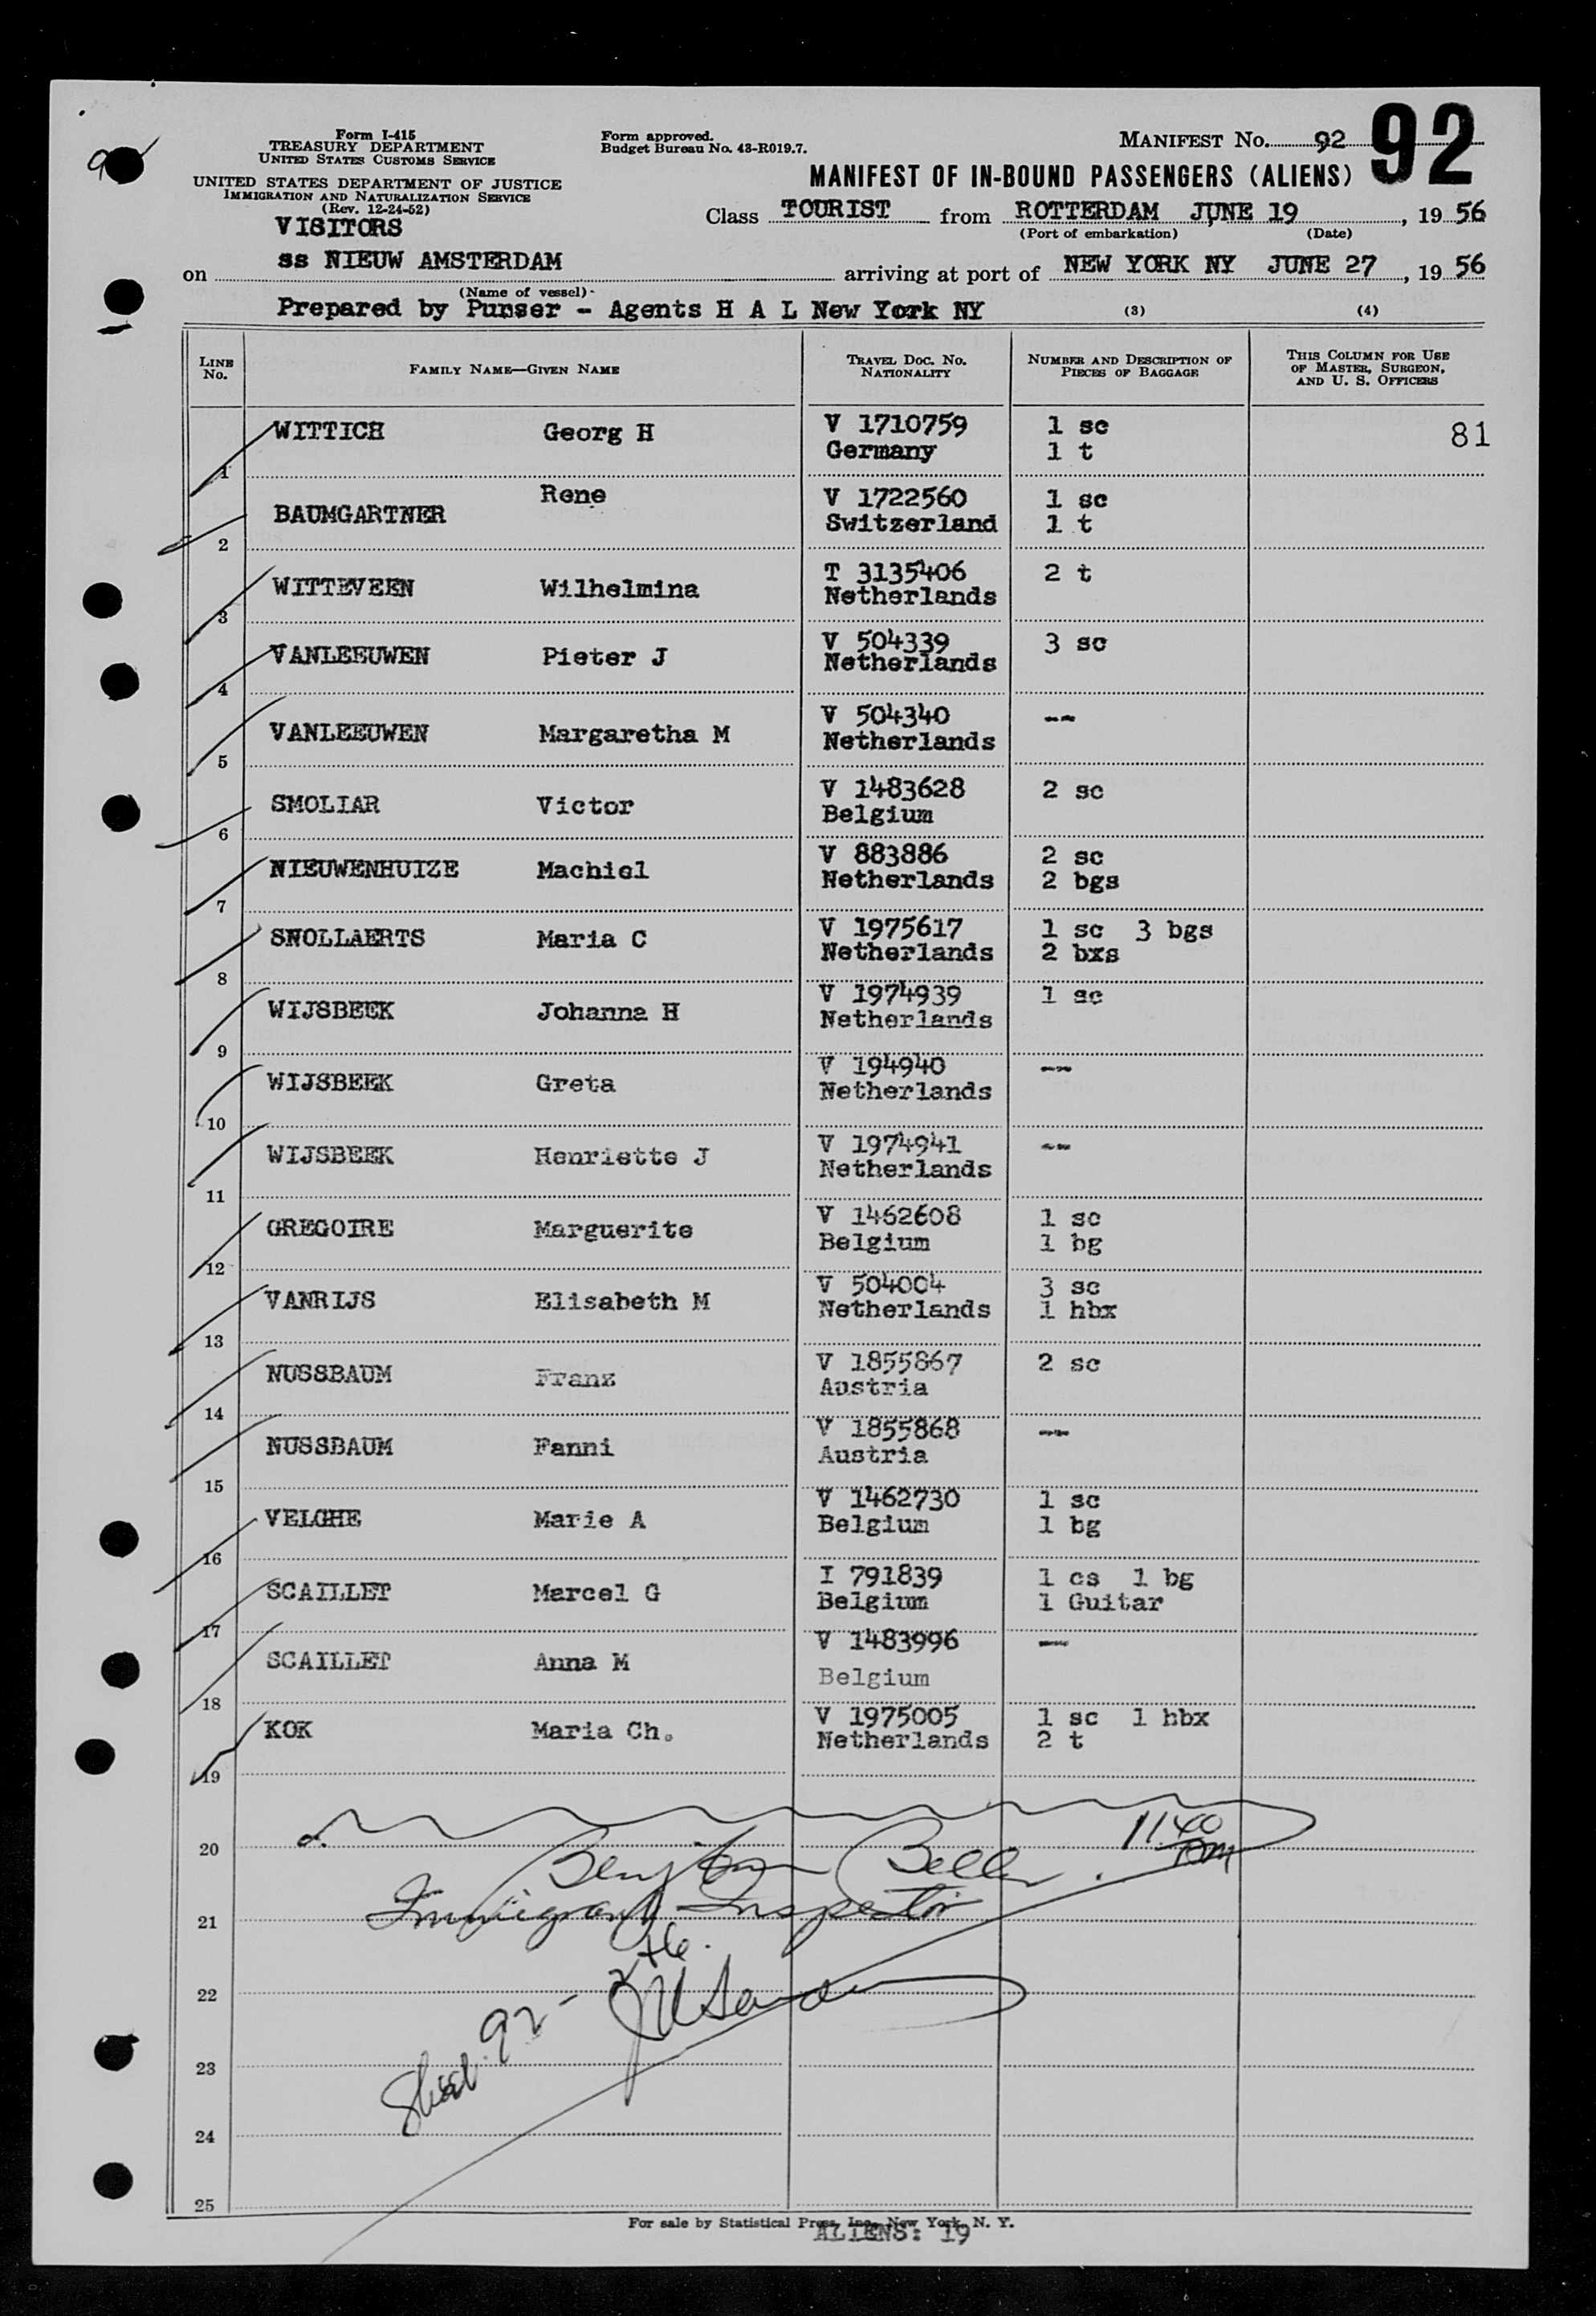 Form I-415
TREASURY DEPARTMENT
UNITED STATES CUSTOMS SERVICE
UNITED STATES DEPARTMENT OF JUSTICE
IMMIGRATION AND NATURALIZATION SERVICE
(Rev. 12-24-52)
VISITORS
Form approved.
Budget Bureau No. 43-R019.7.
MANIFEST No. 92 92
MANIFEST OF IN-BOUND PASSENGERS (ALIENS)
Class TOURIST from ROTTERDAM JUNE 19, 1956
(Port of embarkation) (Date)
on ss NIEUW AMSTERDAM arriving at port of NEW YORK NY JUNE 27, 1956
(Name of vessel)
Prepared by Purser - Agents H A L New York NY (3) (4)
LINE No. FAMILY NAME—GIVEN NAME TRAVEL DOC. NO. NATIONALITY NUMBER AND DESCRIPTION OF PIECES OF BAGGAGE THIS COLUMN FOR USE OF MASTER, SURGEON, AND U. S. OFFICERS
1 WITTICH Georg H V 1710759 1 sc 81
Germany 1 t
2 BAUMGARTNER Rene V 1722560 1 sc
Switzerland 1 t
3 WITTEVEEN Wilhelmina T 3135406 2 t
Netherlands
4 VANLEEUWEN Pieter J V 504339 3 sc
Netherlands
5 VANLEEUWEN Margaretha M V 504340 --
Netherlands
6 SMOLIAR Victor V 1483628 2 sc
Belgium
7 NIEUWENHUIZE Machiel V 883886 2 sc
Netherlands 2 bgs
8 SNOLLAERTS Maria C V 1975617 1 sc 3 bgs
Netherlands 2 bxs
9 WIJSBEEK Johanna H V 1974939 1 sc
Netherlands
10 WIJSBEEK Greta V 194940 --
Netherlands
11 WIJSBEEK Henriette J V 1974941 --
Netherlands
12 GREGOIRE Marguerite V 1462608 1 sc
Belgium 1 bg
13 VANRIJS Elisabeth M V 504004 3 sc
Netherlands 1 hbx
14 NUSSBAUM Franz V 1855867 2 sc
Austria
15 NUSSBAUM Fanni V 1855868 --
Austria
16 VELGHE Marie A V 1462730 1 sc
Belgium 1 bg
17 SCAILLET Marcel G I 791839 1 cs 1 bg
Belgium 1 Guitar
18 SCAILLET Anna M V 1483996 --
Belgium
19 KOK Maria Ch. V 1975005 1 sc 1 hbx
Netherlands 2 t
20 11 40
21 Immigrant Inspector
22
23 92 -
24
25
For sale by Statistical Press, Inc., New York, N. Y.
ALIENS: 19